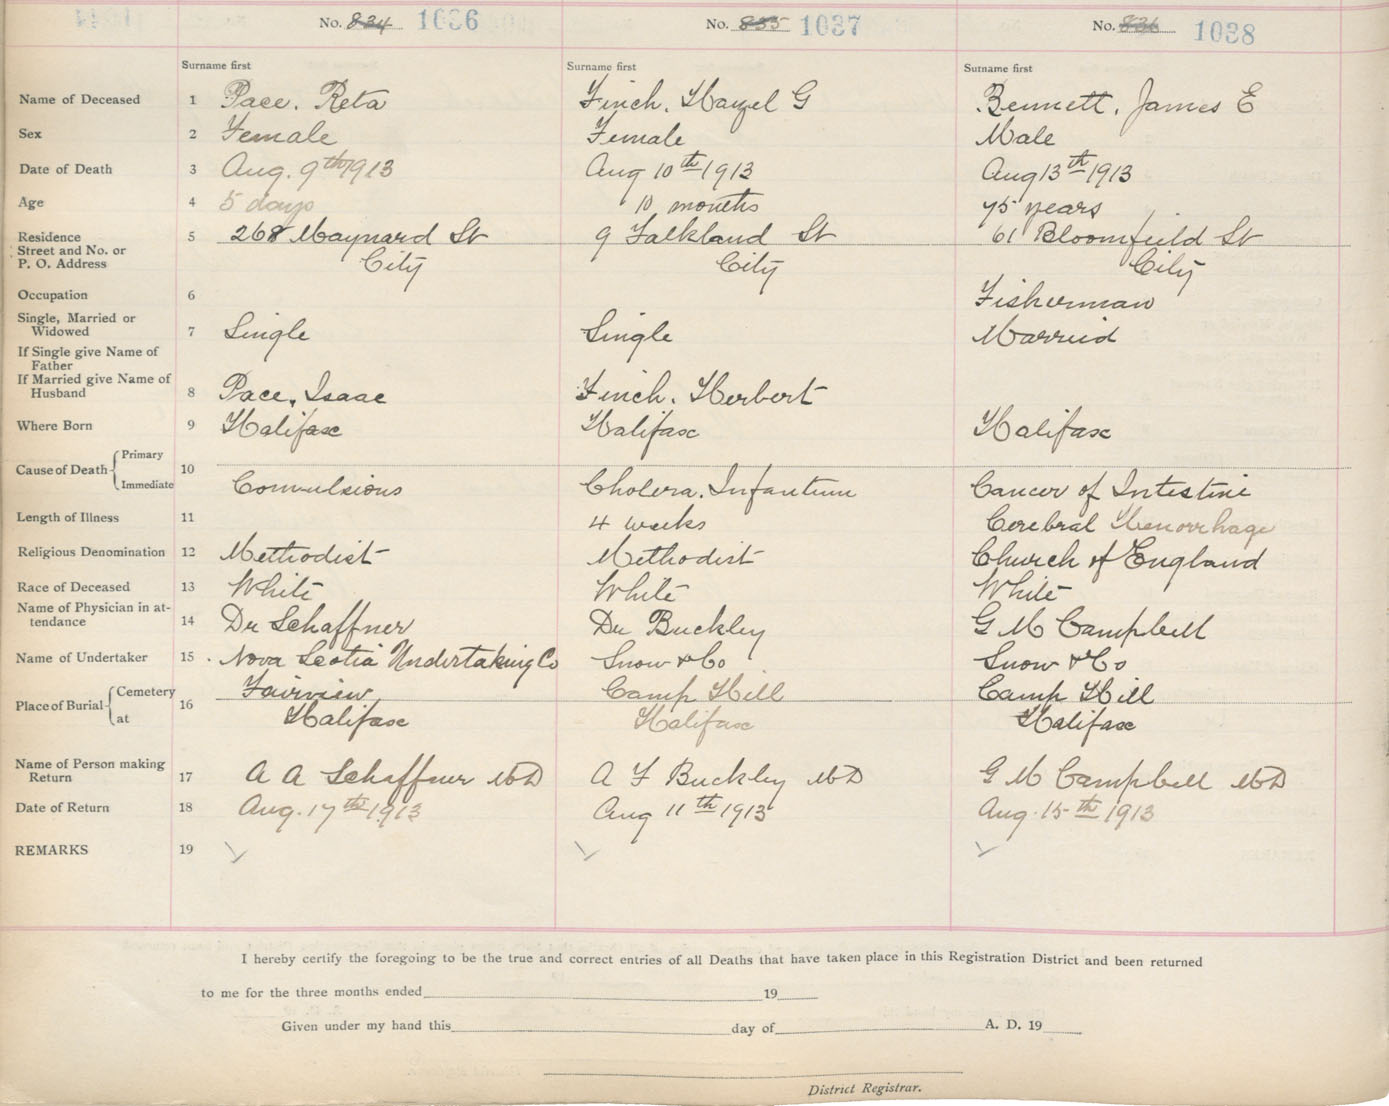 No. 834 1036 No. 835 1037 No. 836 1038
Surname first Surname first Surname first
Name of Deceased 1 Pace, Reta Finch, Hazel G Bennett, James E
Sex 2 Female Female Male
Date of Death 3 Aug. 9th 1913 Aug 10th 1913 Aug 13th 1913
Age 4 5 days 10 months 75 years
Residence
Street and No. or
P. O. Address 5 268 Maynard St 9 Falkland St 61 Bloomfield St
City City City
Occupation 6 Fisherman
Single, Married or
Widowed 7 Single Single Married
If Single give Name of
Father
If Married give Name of
Husband 8 Pace, Isaac Finch, Herbert
Where Born 9 Halifax Halifax Halifax
Cause of Death Primary 10
Immediate Convulsions Cholera Infantum Cancer of Intestine
Length of Illness 11 4 weeks Cerebral Hemorrhage
Religious Denomination 12 Methodist Methodist Church of England
Race of Deceased 13 White White White
Name of Physician in at-
tendance 14 Dr Schaffner Dr Buckley G M Campbell
Name of Undertaker 15 Nova Scotia Undertaking Co Snow & Co Snow & Co
Place of Burial Cemetery 16 Fairview Camp Hill Camp Hill
at Halifax Halifax Halifax
Name of Person making
Return 17 A A Schaffner MD A F Buckley MD G M Campbell MD
Date of Return 18 Aug. 17th 1913 Aug 11th 1913 Aug. 15th 1913
REMARKS 19
I hereby certify the foregoing to be the true and correct entries of all Deaths that have taken place in this Registration District and been returned
to me for the three months ended 19
Given under my hand this day of A. D. 19
District Registrar.